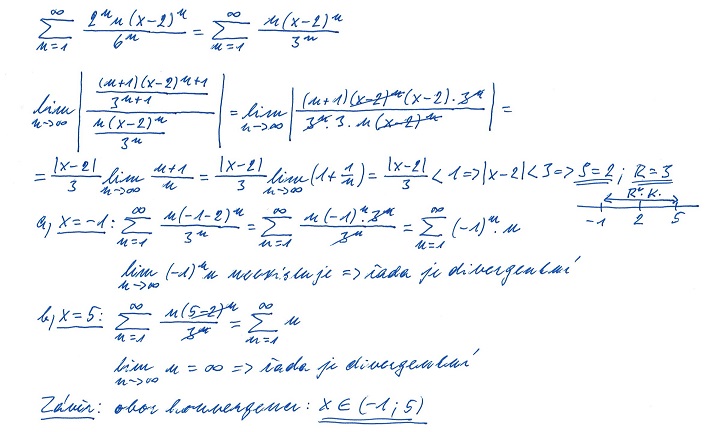 ∑_{n=1}^{∞} 2ⁿn(x-2)ⁿ/6ⁿ = ∑_{n=1}^{∞} n(x-2)ⁿ/3ⁿ
lim_{n→∞} |((n+1)(x-2)ⁿ⁺¹/3ⁿ⁺¹)/(n(x-2)ⁿ/3ⁿ)| = lim_{n→∞} |(n+1)(x-2)ⁿ(x-2)·3ⁿ/(3ⁿ·3·n(x-2)ⁿ)| =
= |x-2|/3 lim_{n→∞} (n+1)/n = |x-2|/3 lim_{n→∞} (1+1/n) = |x-2|/3 < 1 => |x-2| < 3 => S=2; R=3
R. K.
-1 2 5
a, x=-1: ∑_{n=1}^{∞} n(-1-2)ⁿ/3ⁿ = ∑_{n=1}^{∞} n(-1)ⁿ·3ⁿ/3ⁿ = ∑_{n=1}^{∞} (-1)ⁿ·n
lim_{n→∞} (-1)ⁿn neexistuje => řada je divergentní
b, x=5: ∑_{n=1}^{∞} n(5-2)ⁿ/3ⁿ = ∑_{n=1}^{∞} n
lim_{n→∞} n = ∞ => řada je divergentní
Závěr: obor konvergence: x ∈ (-1; 5)